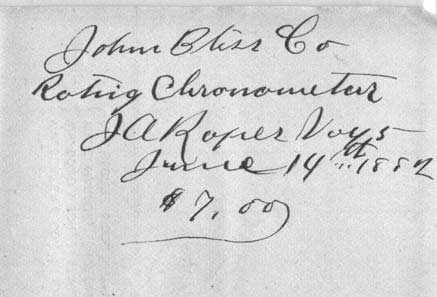 John Bliss Co
Rating Chronometer
J A Roper Voy 5
June 14th 1882
$7.00